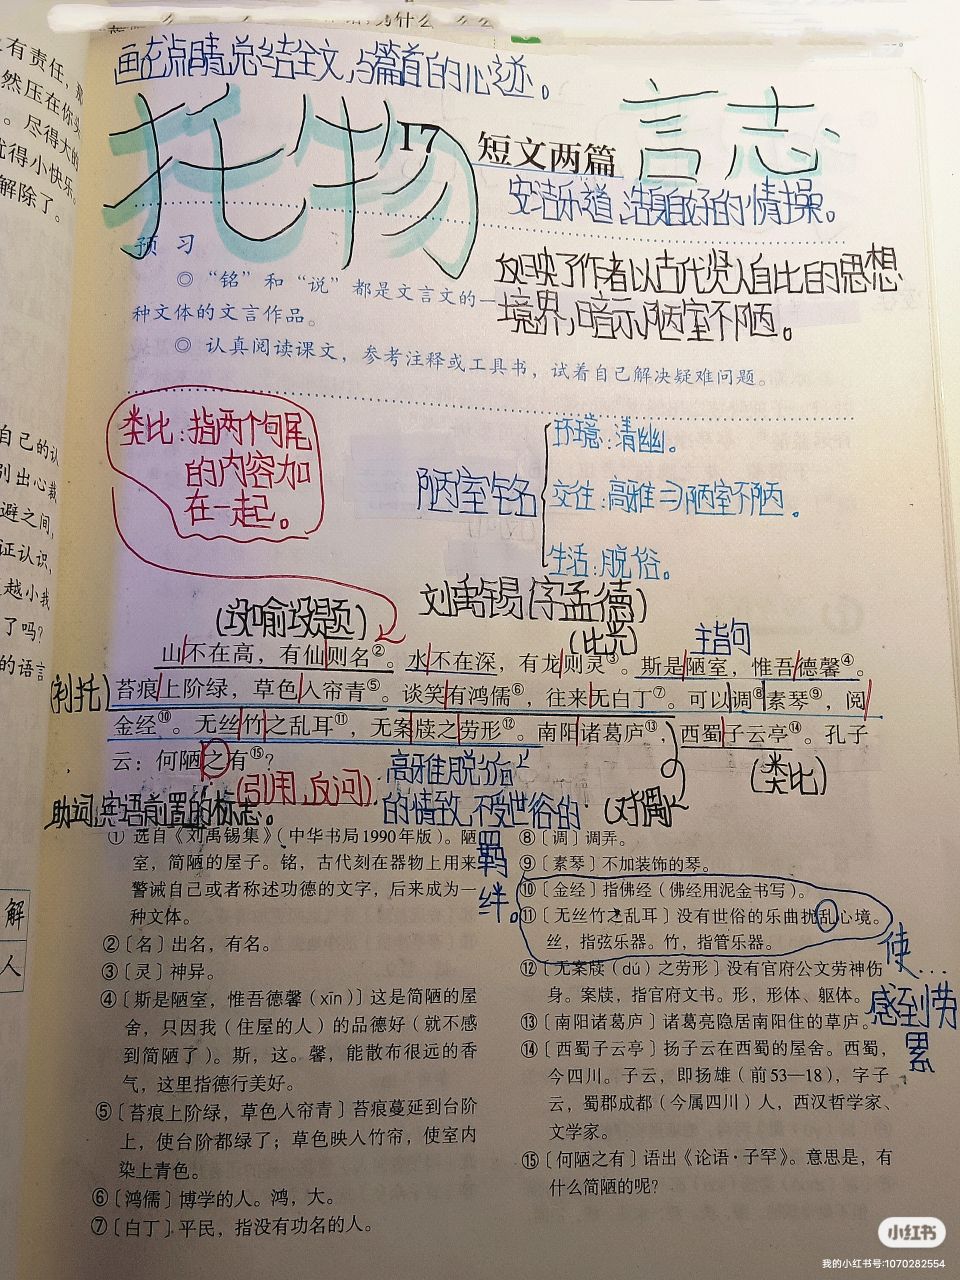 有责任，那
然压在你头
。尽得大的
得小快乐
解除了。
自己的认
别出心裁
避之间，
证认识，
越小我
了吗？
的语言
解
人
画龙点睛，总结全文，与篇首的心迹。
托物 言志
17 短文两篇
安洁乐道，洁身自好的情操。
预 习
反映了作者以古代贤人自比的思想
◎ “铭”和“说”都是文言文的一
境界，暗示，陋室不陋。
种文体的文言作品。
◎ 认真阅读课文，参考注释或工具书，试着自己解决疑难问题。
类比：指两个句尾
的内容加
在一起。
陋室铭
环境：清幽。
交往：高雅⇒陋室不陋。
生活：脱俗。
刘禹锡（字孟德）
（设喻设题）
（比兴）
主指句
山不在高，有仙则名②。水不在深，有龙则灵③。斯是陋室，惟吾德馨④。
苔痕上阶绿，草色入帘青⑤。谈笑有鸿儒⑥，往来无白丁⑦。可以调⑧素琴⑨，阅
金经⑩。无丝竹之乱耳⑪，无案牍之劳形⑫。南阳诸葛庐⑬，西蜀子云亭⑭。孔子
云：何陋之有⑮？
（引用，反问）
高雅脱俗
（类比）
助词，宾语前置的标志。
的情致，不受世俗的
（对偶）
羁
绊。
① 选自《刘禹锡集》（中华书局1990年版）。陋
室，简陋的屋子。铭，古代刻在器物上用来
警诫自己或者称述功德的文字，后来成为一
种文体。
②〔名〕出名，有名。
③〔灵〕神异。
④〔斯是陋室，惟吾德馨（xīn）〕这是简陋的屋
舍，只因我（住屋的人）的品德好（就不感
到简陋了）。斯，这。馨，能散布很远的香
气，这里指德行美好。
⑤〔苔痕上阶绿，草色入帘青〕苔痕蔓延到台阶
上，使台阶都绿了；草色映入竹帘，使室内
染上青色。
⑥〔鸿儒〕博学的人。鸿，大。
⑦〔白丁〕平民，指没有功名的人。
⑧〔调〕调弄。
⑨〔素琴〕不加装饰的琴。
⑩〔金经〕指佛经（佛经用泥金书写）。
⑪〔无丝竹之乱耳〕没有世俗的乐曲扰乱心境。
丝，指弦乐器。竹，指管乐器。
⑫〔无案牍（dú）之劳形〕没有官府公文劳神伤
身。案牍，指官府文书。形，形体、躯体。
使…
感到劳
累
⑬〔南阳诸葛庐〕诸葛亮隐居南阳住的草庐。
⑭〔西蜀子云亭〕扬子云在西蜀的屋舍。西蜀，
今四川。子云，即扬雄（前53—18），字子
云，蜀郡成都（今属四川）人，西汉哲学家、
文学家。
⑮〔何陋之有〕语出《论语·子罕》。意思是，有
什么简陋的呢？
小红书
我的小红书号:1070282554